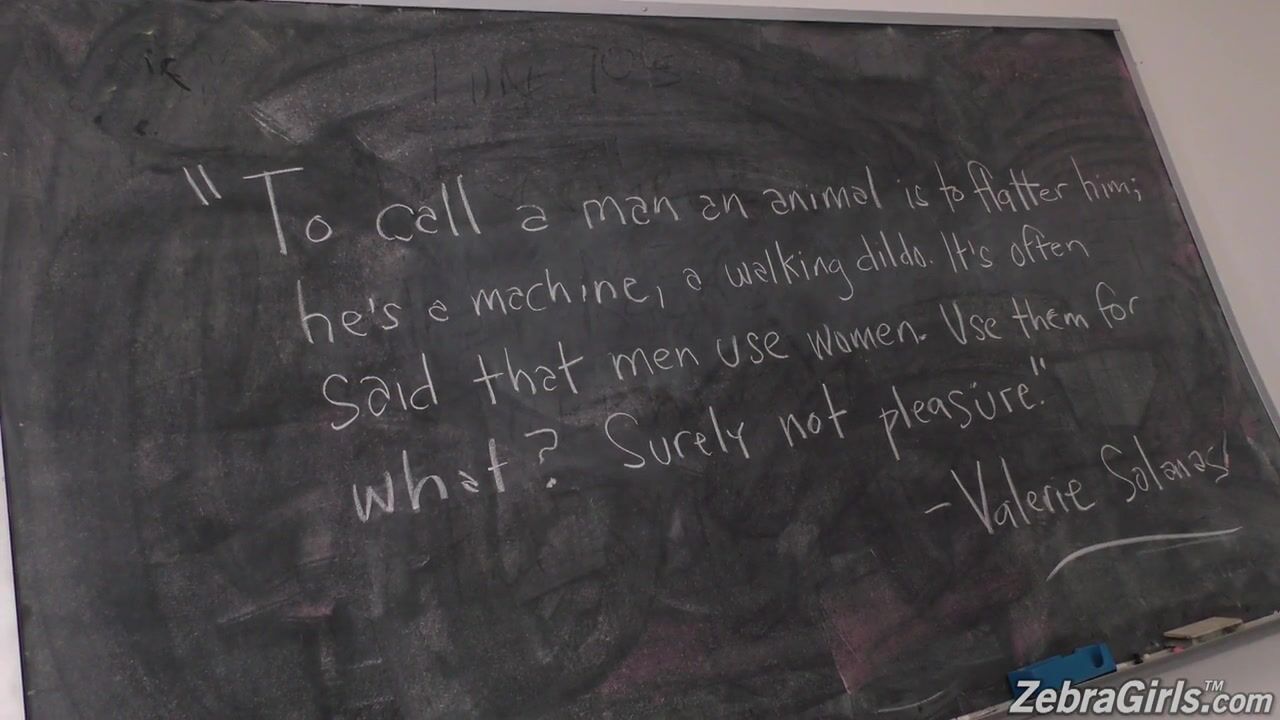 "To call a man an animal is to flatter him;
he's a machine, a walking dildo. It's often
said that men use women. Use them for
what? Surely not pleasure."
- Valerie Solanas
ZebraGirls™.com